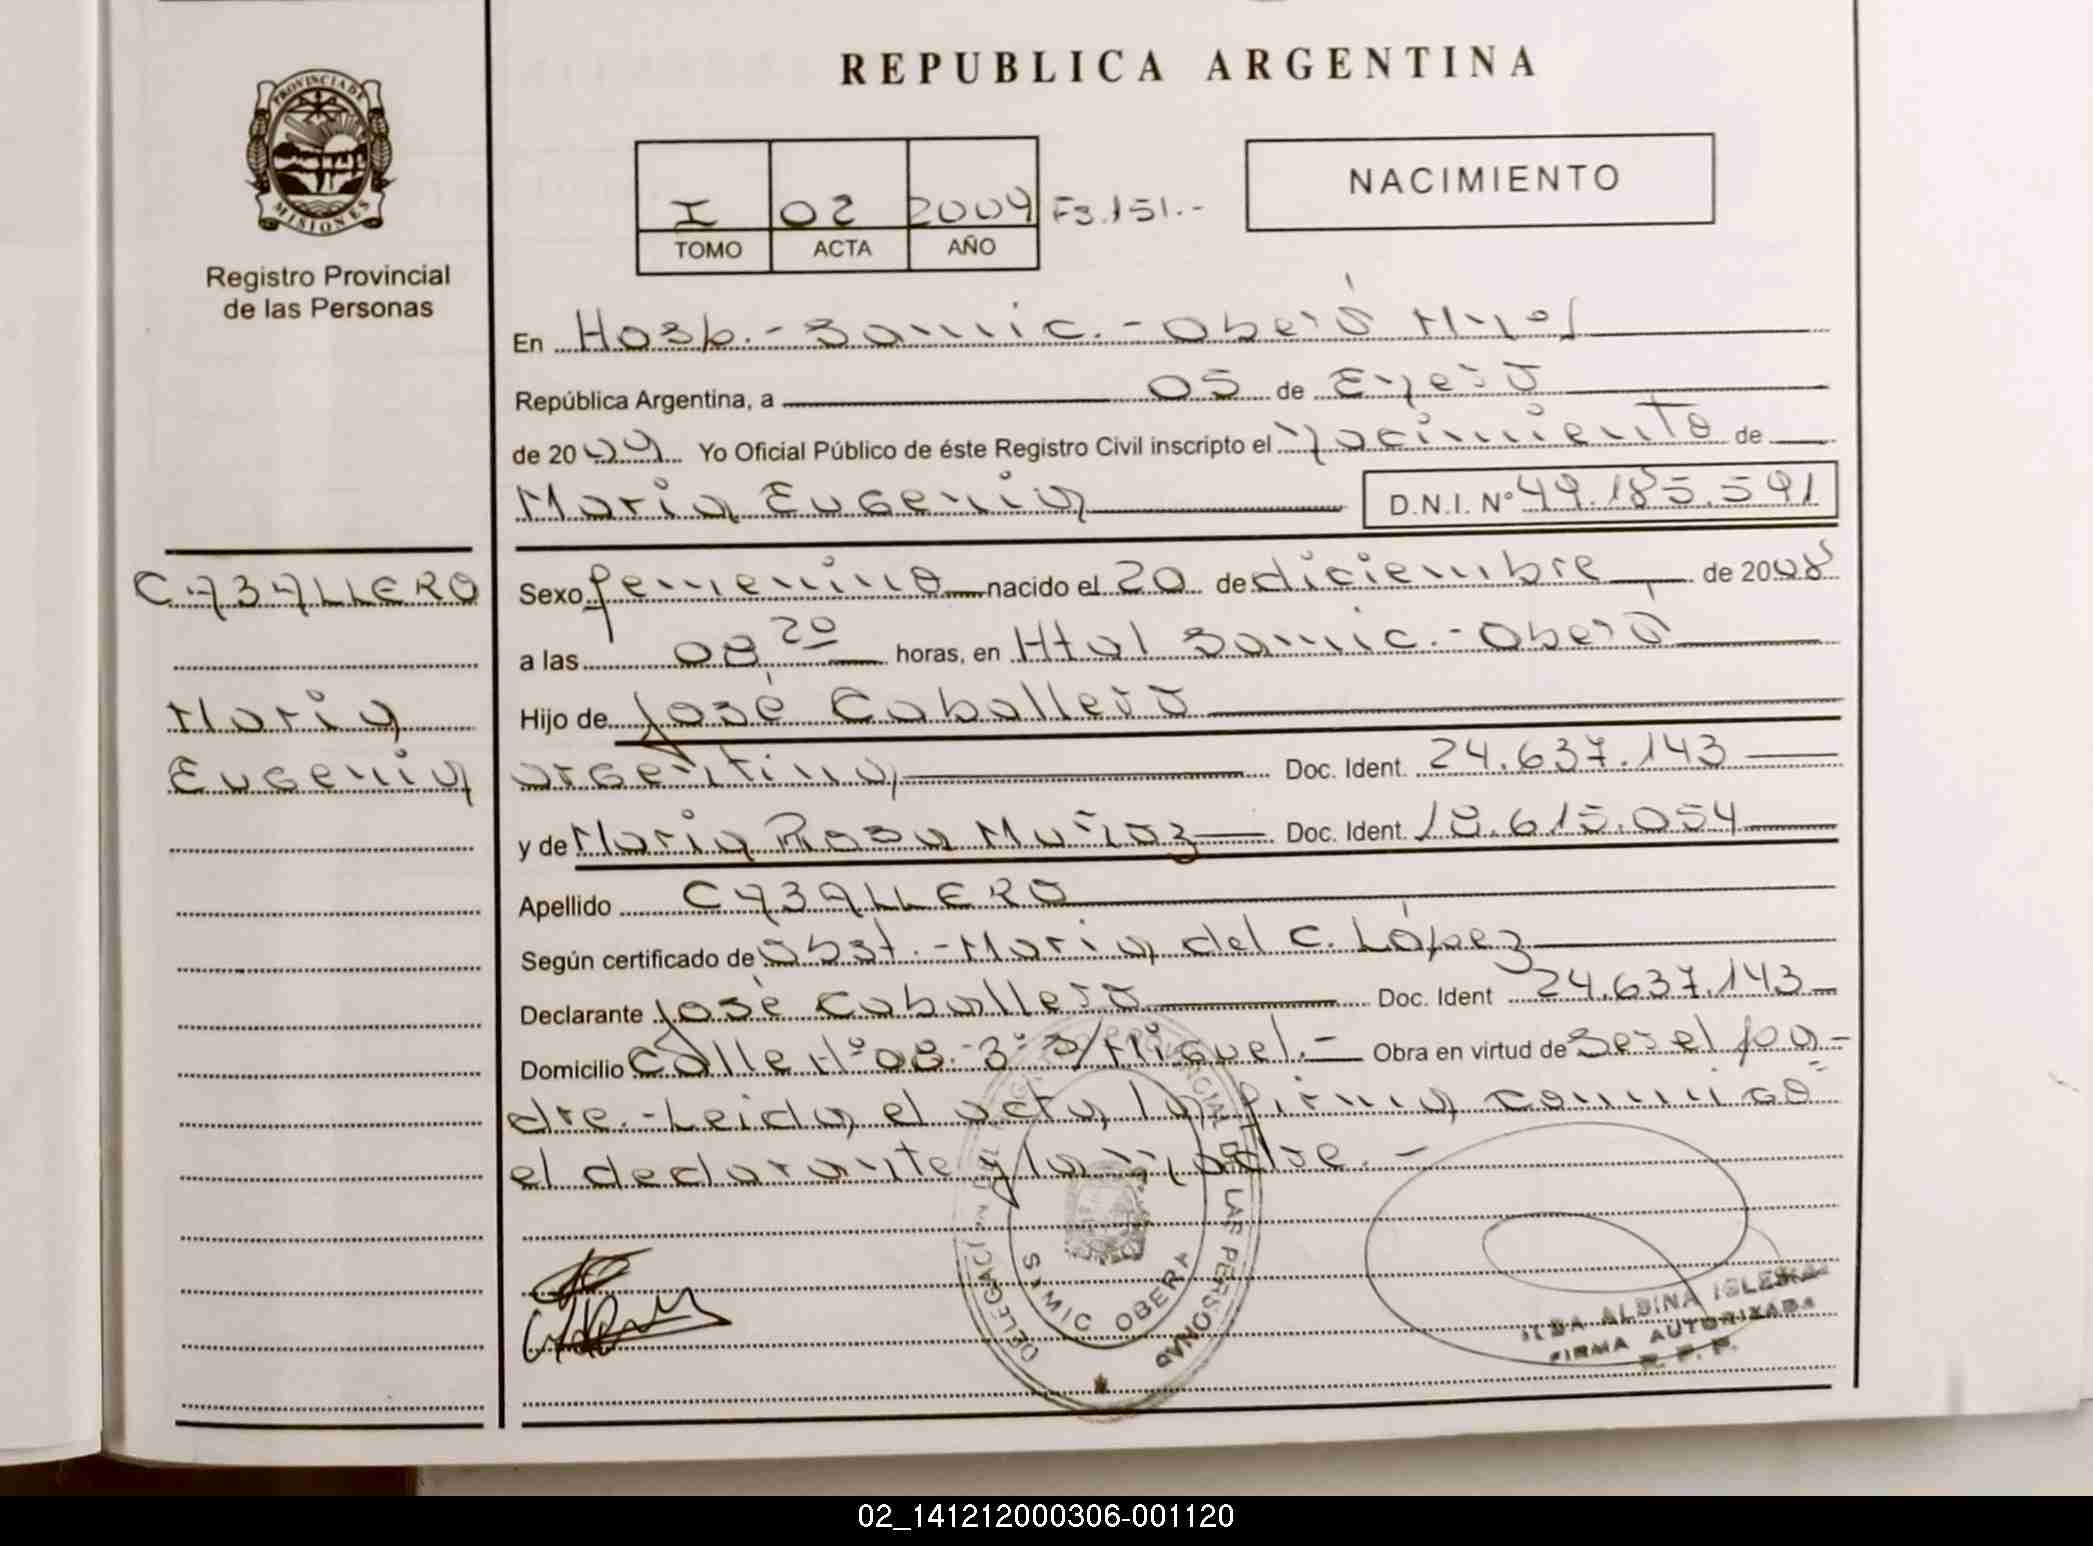 PROVINCIA DE
MISIONES
Registro Provincial
de las Personas
REPUBLICA ARGENTINA
I 02 2009 Fs.151.-
TOMO ACTA AÑO
NACIMIENTO
En Hosp.-Samic.-Oberá Mnes
República Argentina, a 05 de Enero
de 2009 Yo Oficial Público de éste Registro Civil inscripto el nacimiento de
Maria Eugenia D.N.I. N° 49.185.591
CABALLERO
Maria
Eugenia
Sexo femenino nacido el 20 de diciembre de 2008
a las 08 20 horas, en Htal Samic.-Oberá
Hijo de José Caballero
argentina Doc. Ident. 24.637.143
y de Maria Rosa Muñoz Doc. Ident. 18.615.054
Apellido CABALLERO
Según certificado de Obst.-Maria del C. López
Declarante José Caballero Doc. Ident 24.637.143
Domicilio Calle N°08-B°S/Miguel.- Obra en virtud de Ser el pa-
dre.-Leida el acta la firma conmigo
el declarante y la madre.-
DELEGACI DEL REG PROVINCIAL DE LAS PERSONAS
SAMIC OBERA
ILDA ALBINA IGLESIA
FIRMA AUTORIZADA
R. P. P.
02_141212000306-001120